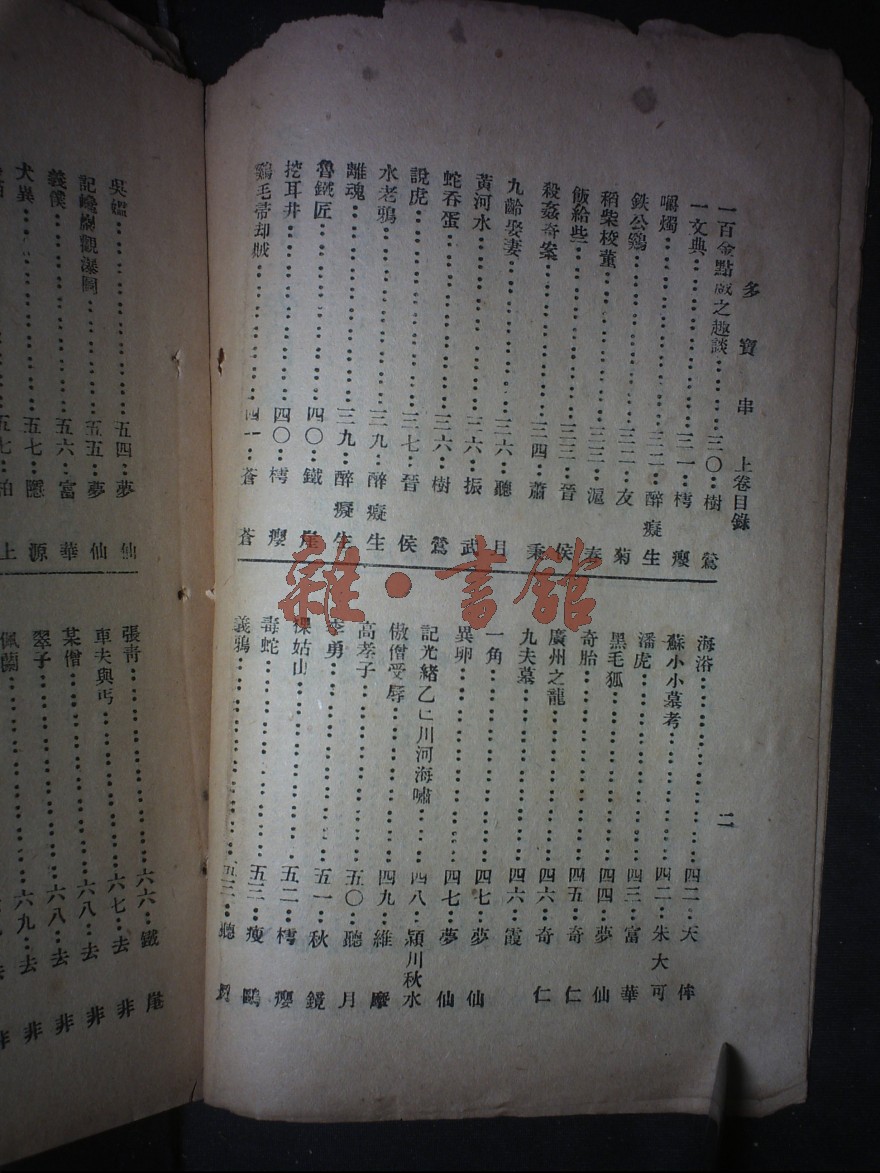 多寶串 上卷目錄 二
一百金點戲之趣談 三〇 樹鶯
一文典 三一 樗癭
嚼燭 三二 醉癡生
鉄公鷄 三二 友菊
稻柴校董 三三 滬春
飯給些 三三 晉侯
殺姦奇案 三四 蕭秉
九齡娶妻 三六 聽月
黃河水 三六 振武
蛇吞蛋 三六 樹鶯
說虎 三七 晉侯
水老鴉 三九 醉癡生
離魂 三九 醉癡生
魯鐵匠 四〇 鐵崖
挖耳井 四〇 樗癭
鷄毛帚却賊 四一 蒼蒼
海浴 四二 天侔
蘇小小墓考 四二 朱大可
潘虎 四三 富華
黑毛狐 四四 夢仙
奇胎 四五 奇仁
廣州之龍 四六 奇仁
九夫墓 四六 霞
一角 四七 夢仙
異卵 四七 夢仙
記光緒乙巳川河海嘯 四八 潁川秋水
傲僧受辱 四九 維摩
高孝子 五〇 聽月
李勇 五一 秋鏡
裸姑山 五二 樗癭
毒蛇 五三 瘦鷗
義鴉 五三 聽
吳媼 五四 夢仙
記 觀瀑圖 五五 夢仙
義僕 五六 富華
犬異 五七 隱源
五七 柏上
張靑 六六 鐵崖
車夫與丐 六七 去非
某僧 六八 去非
翠子 六八 去非
佩蘭 六九 去非
非
雜·書館